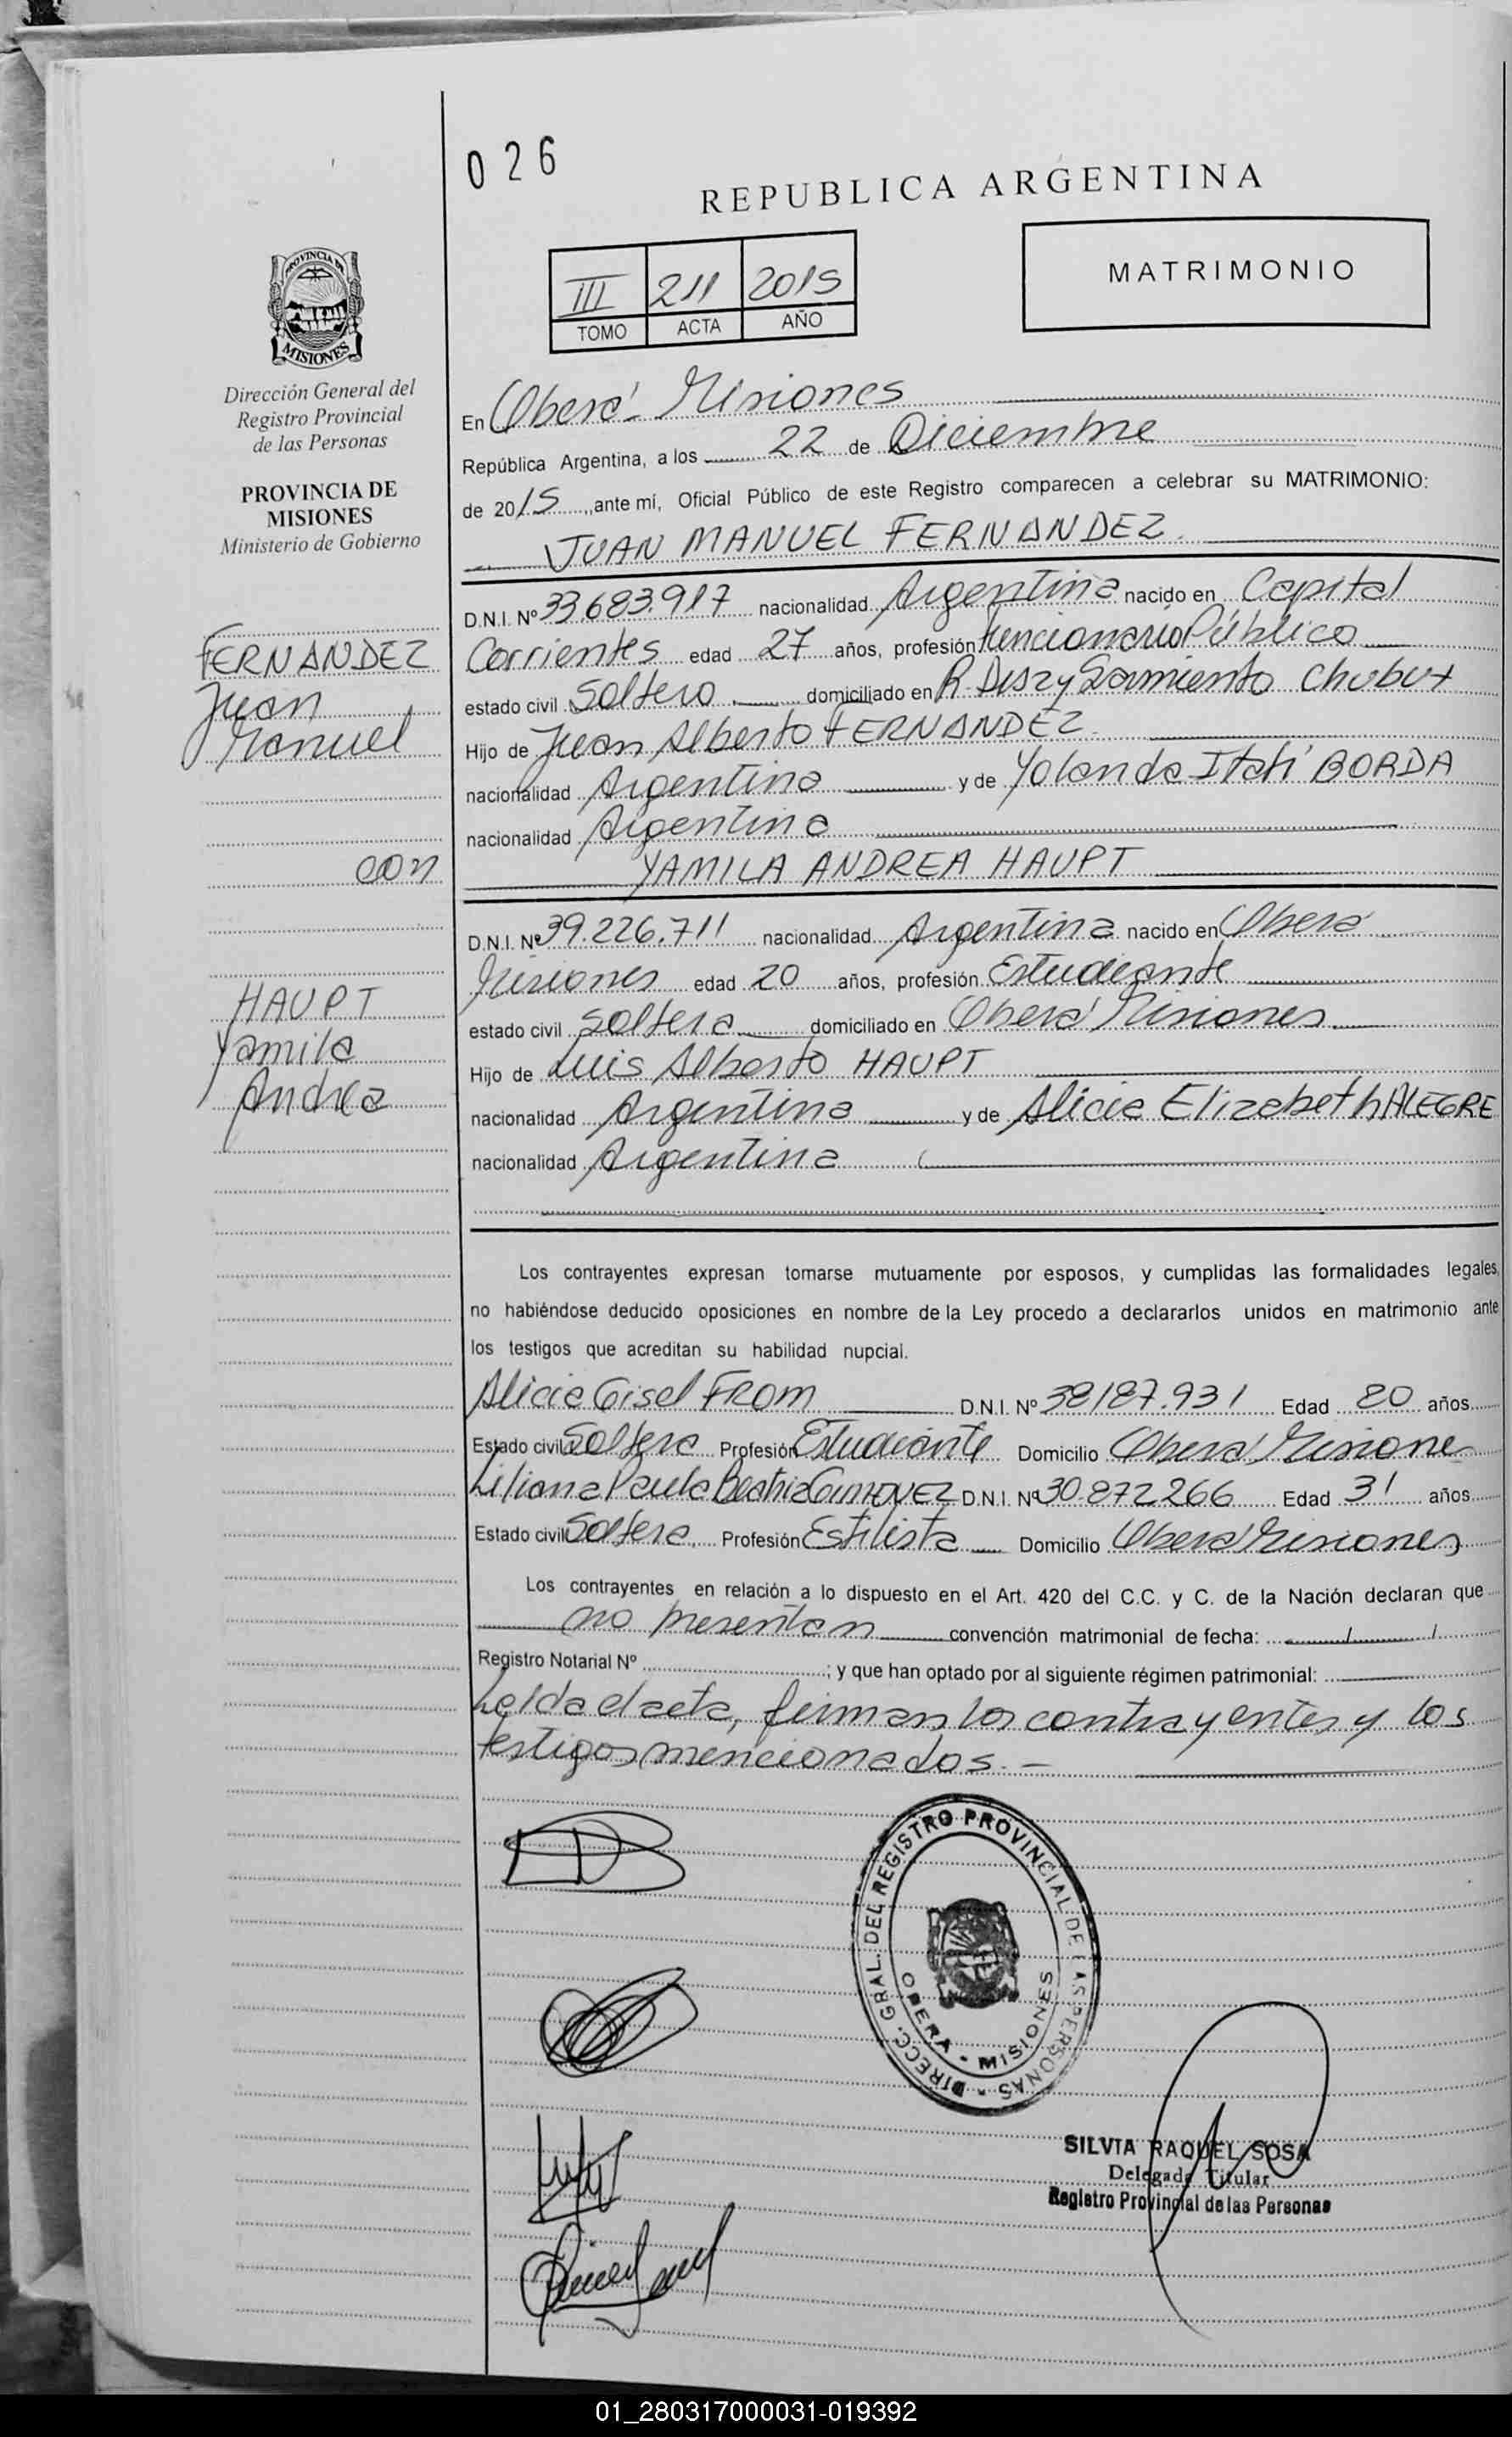 026
REPUBLICA ARGENTINA
MATRIMONIO
III 211 2015
TOMO ACTA AÑO
PROVINCIA DE
MISIONES
Dirección General del
Registro Provincial
de las Personas
PROVINCIA DE
MISIONES
Ministerio de Gobierno
FERNANDEZ
Juan
Manuel
con
HAUPT
Yamila
Andrea
En Oberá - Misiones
República Argentina, a los 22 de Diciembre
de 2015 ante mí, Oficial Público de este Registro comparecen a celebrar su MATRIMONIO:
JUAN MANUEL FERNANDEZ
D.N.I. Nº 33.683.917 nacionalidad Argentina nacido en Capital
Corrientes edad 27 años, profesión funcionario Público
estado civil Soltero domiciliado en Sarmiento Chubut
Hijo de Juan Alberto FERNANDEZ
nacionalidad Argentina y de Yolanda Itatí BORDA
nacionalidad Argentina
YAMILA ANDREA HAUPT
D.N.I. Nº 39.226.711 nacionalidad Argentina nacido en Oberá
Misiones edad 20 años, profesión Estudiante
estado civil Soltera domiciliado en Oberá Misiones
Hijo de Luis Alberto HAUPT
nacionalidad Argentina y de Alicia Elizabeth ALEGRE
nacionalidad Argentina
Los contrayentes expresan tomarse mutuamente por esposos, y cumplidas las formalidades legales,
no habiéndose deducido oposiciones en nombre de la Ley procedo a declararlos unidos en matrimonio ante
los testigos que acreditan su habilidad nupcial.
Alicia Gisel FROM D.N.I. Nº 38187.931 Edad 20 años
Estado civil Soltera Profesión Estudiante Domicilio Oberá Misiones
Liliana Paula Beatriz D.N.I. Nº 30.872.266 Edad 31 años
Estado civil Soltera Profesión Estilista Domicilio Oberá Misiones
Los contrayentes en relación a lo dispuesto en el Art. 420 del C.C. y C. de la Nación declaran que
no presentan convención matrimonial de fecha: / /
Registro Notarial Nº ; y que han optado por al siguiente régimen patrimonial:
Leída el acta, firman los contrayentes y los
testigos mencionados.-
DIRECC. GRAL. DEL REGISTRO PROVINCIAL DE LAS PERSONAS
OBERA - MISIONES
SILVIA RAQUEL SOSA
Delegada Titular
Registro Provincial de las Personas
01_280317000031-019392